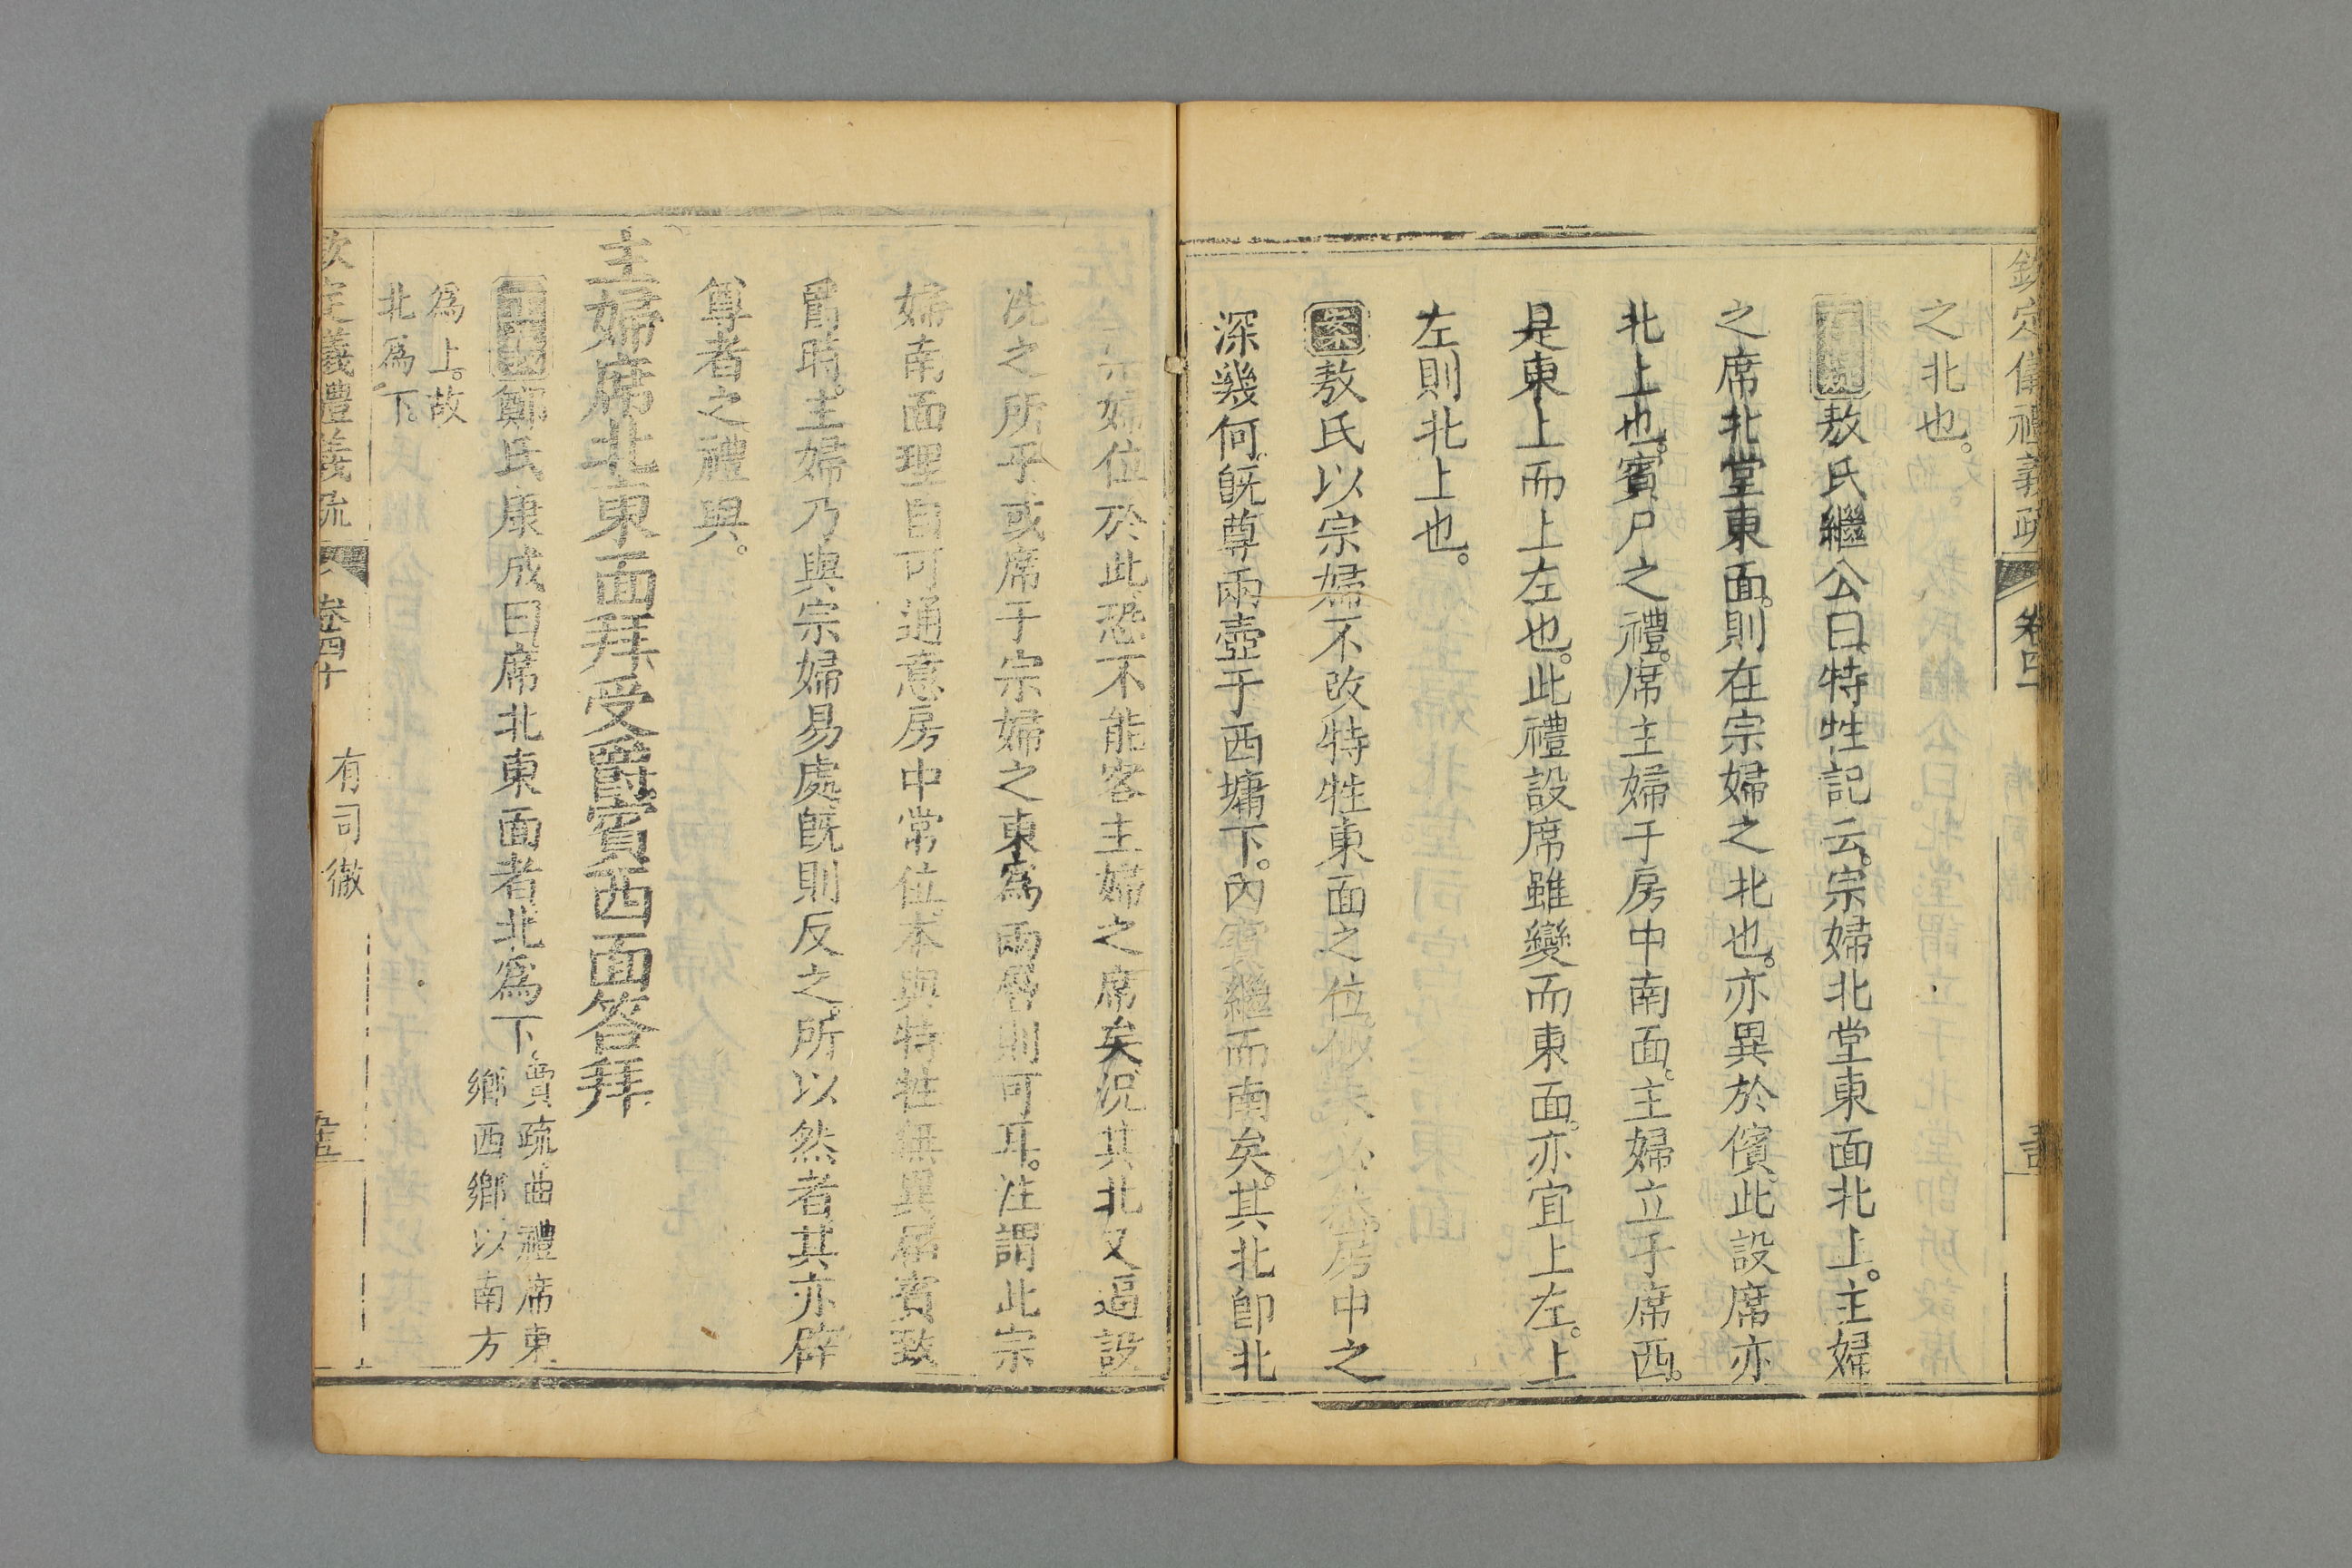 欽定儀禮義疏 卷四十
之北也。
敖氏繼公曰特牲記云。宗婦北堂東面北上。主婦
之席北堂東面。則在宗婦之北也。亦異於儐此設席亦
北上也。賓尸之禮。席主婦于房中南面。主婦立于席西。
是東上而上左也。此禮設席雖變而東面。亦宜上左。上
左則北上也。
案敖氏以宗婦不改特牲東面之位。房中之
深幾何。旣尊兩壺于西墉下。內賓繼而南矣。其北卽北
宗婦位於此。恐不能容主婦之席矣。況其北又逼設
洗之所乎。或席于宗婦之東。為兩層則可耳。注謂此宗
婦南面理自可通。意房中常位。本與特牲無異。屆賓致
爵時。主婦乃與宗婦易處。旣則反之。所以然者。其亦辟
尊者之禮與。
主婦席北東面拜受爵賓西面答拜
鄭氏康成曰席北東面者北為下。賈疏。曲禮席東
鄉西鄉以南方
為上。故
北為下。
欽定義禮義疏 卷四十 有司徹